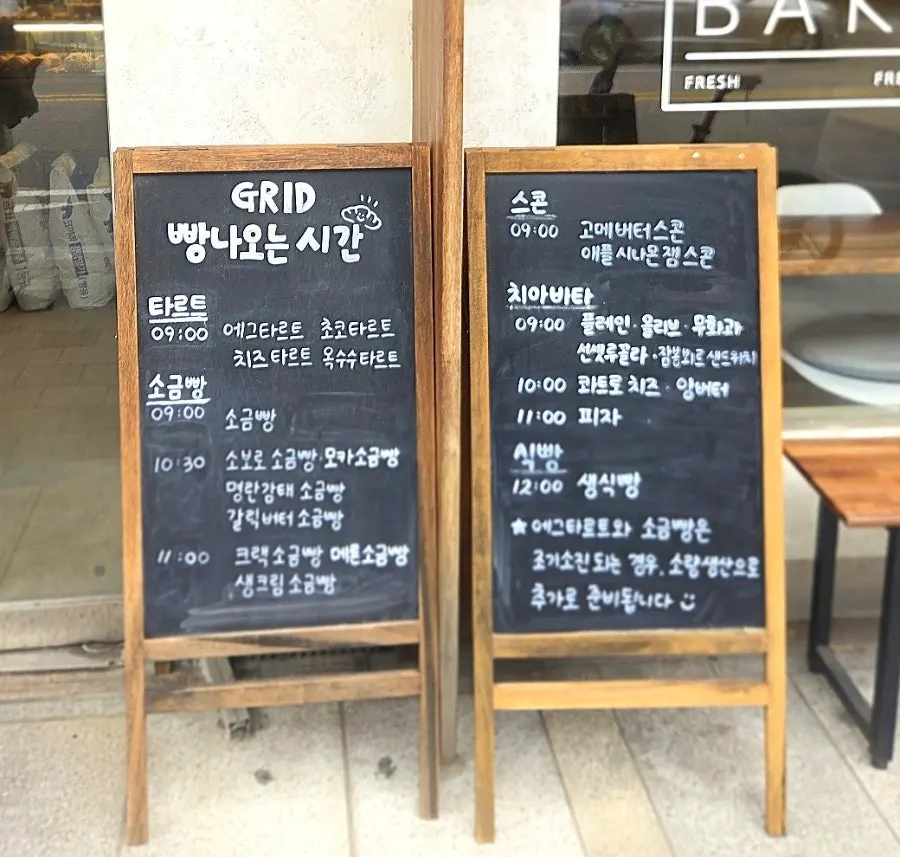 GRID
빵나오는 시간
타르트
09:00 에그타르트 초코타르트
치즈타르트 옥수수타르트
소금빵
09:00 소금빵
10:30 소보로 소금빵·모카소금빵
명란감태 소금빵
갈릭버터 소금빵
11:00 크랙소금빵 메론소금빵
생크림 소금빵
BAK
FRESH FRE
스콘
09:00 고메버터스콘
애플시나몬잼스콘
치아바타
09:00 플레인·올리브·무화과
선셋루꼴라·잠봉뵈르샌드위치
10:00 콰트로치즈·앙버터
11:00 피자
식빵
12:00 생식빵
★ 에그타르트와 소금빵은
조기소진 되는 경우, 소량생산으로
추가로 준비됩니다